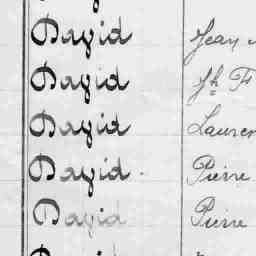 David Jean
David Jh F
David Lauren
David. Pierre
David Pierre